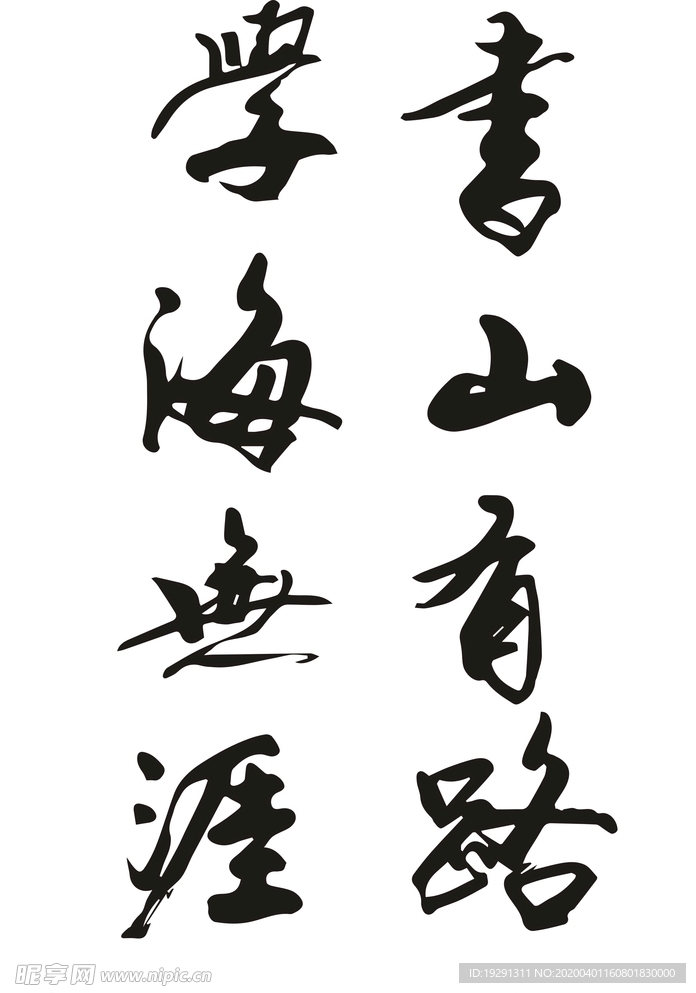 書山有路
學海無涯
昵享网 www.nipic.cn
ID:19291311 NO:20200401160801830000